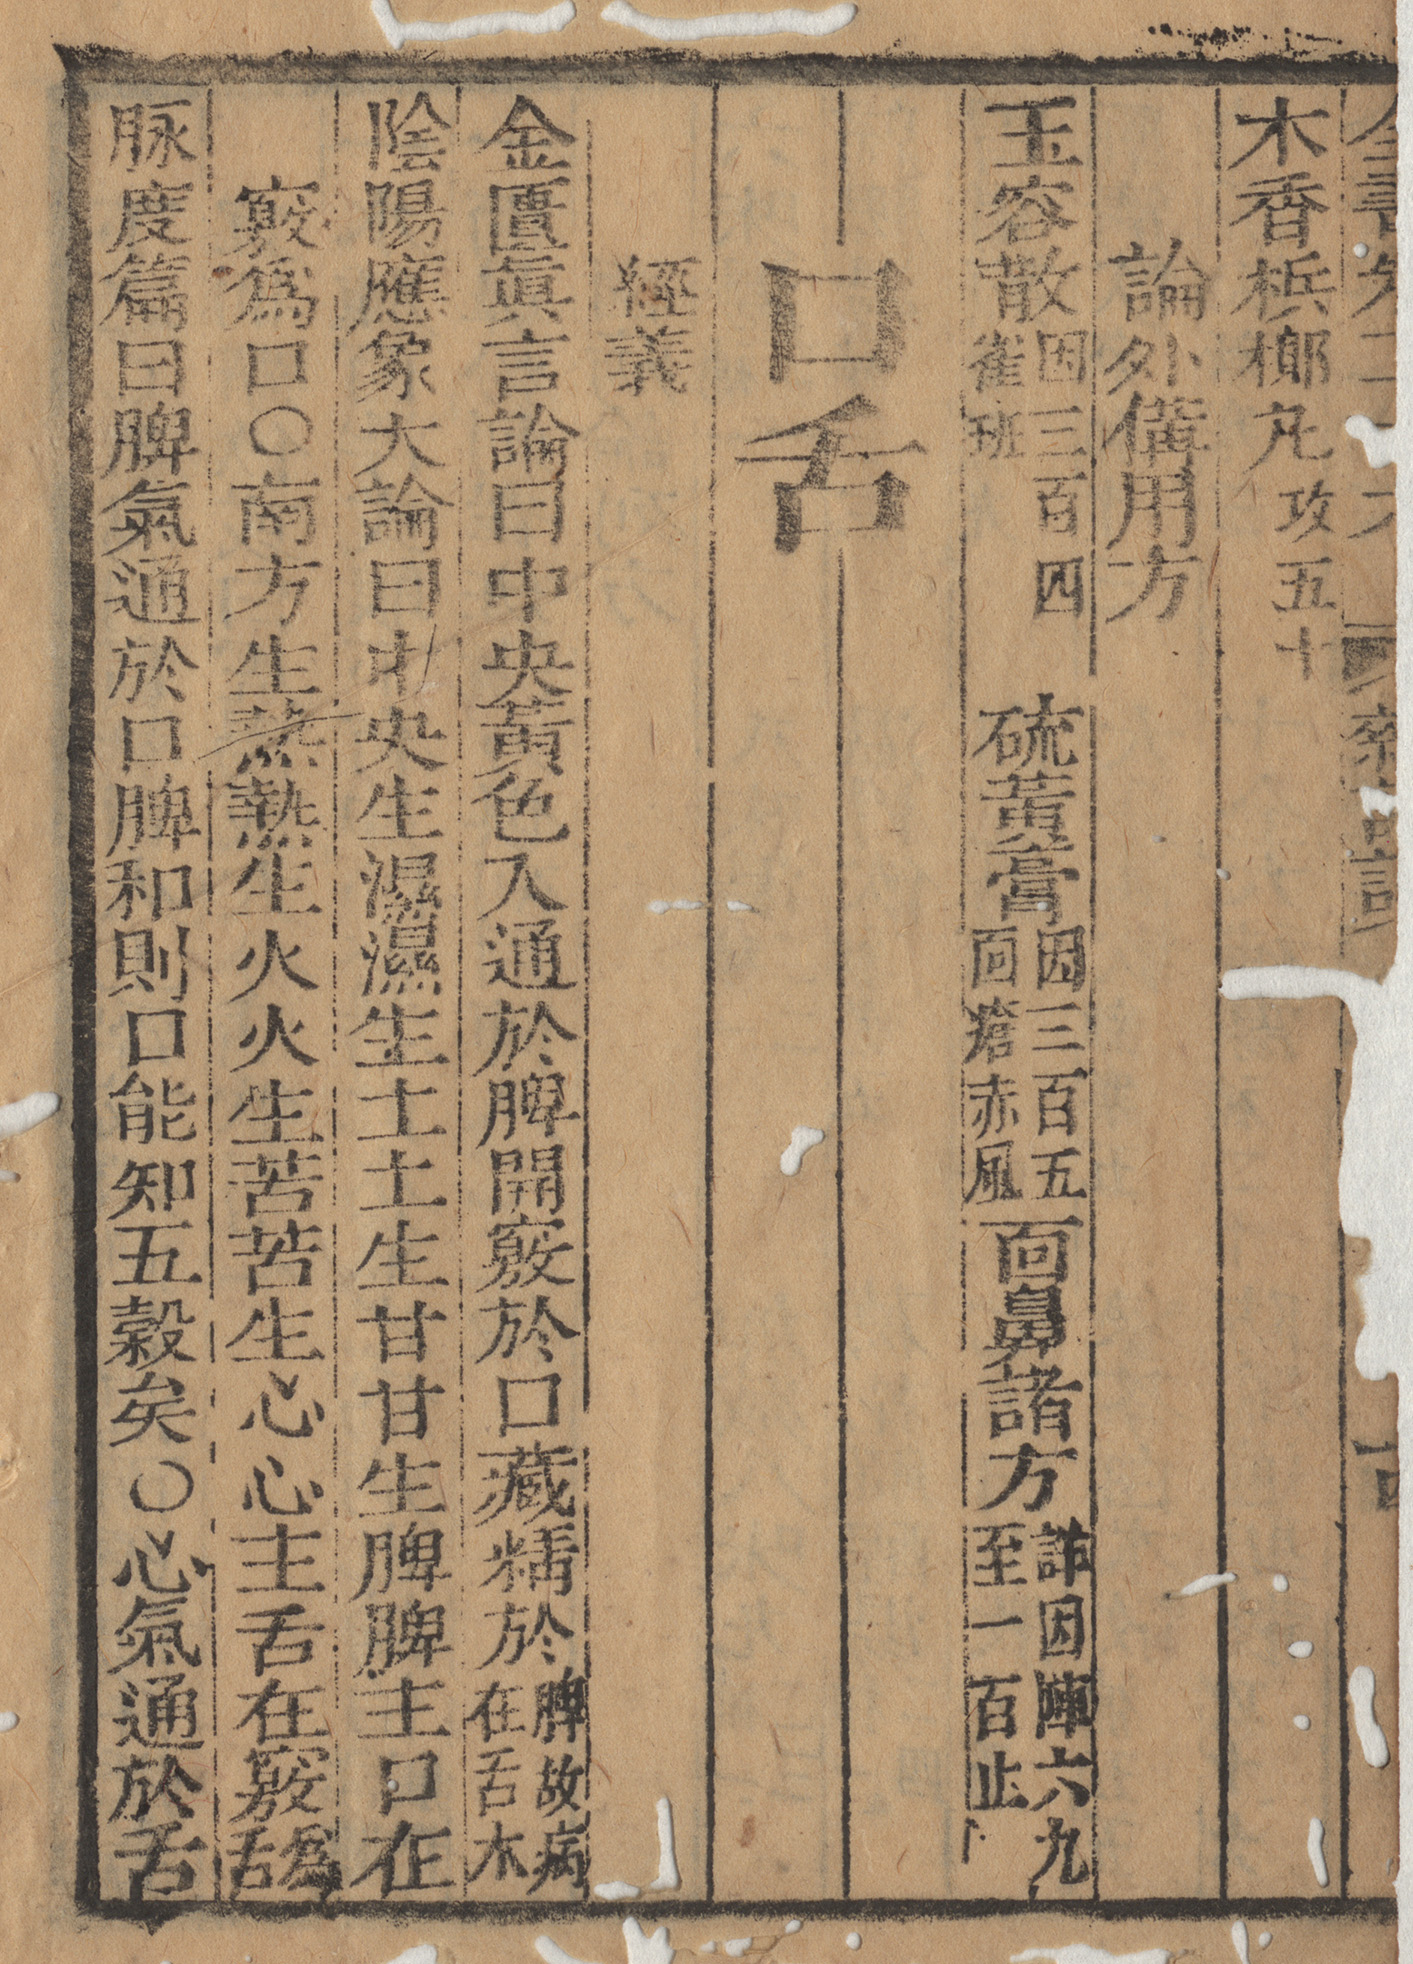 木香梹榔凢攻五十
論外備用方
玉容散因三百四雀班 硫黃膏因三百五面瘡赤風面鼻諸方詐因陣六九至一百止
口舌
經義
金匱眞言論曰中央黃色入通於脾開竅於口藏精於脾故病在舌木
陰陽應象大論曰中央生濕濕生土土生甘甘生脾脾主口在
竅爲口〇南方生熱熱生火火生苦苦生心心主舌在竅爲舌
脉度篇曰脾氣通於口脾和則口能知五穀矣〇心氣通於舌